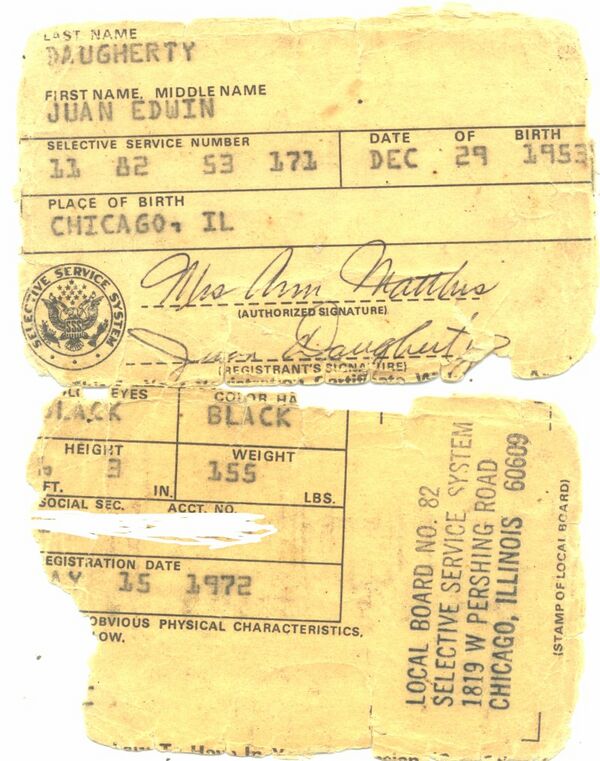 LAST NAME
DAUGHERTY
FIRST NAME, MIDDLE NAME
JUAN EDWIN
SELECTIVE SERVICE NUMBER
11 82 53 171
DATE OF BIRTH
DEC 29 1953
PLACE OF BIRTH
CHICAGO, IL
SELECTIVE SERVICE SYSTEM
Mrs Ann Matthis
(AUTHORIZED SIGNATURE)
Juan Daugherty
(REGISTRANT'S SIGNATURE)
EYES
BLACK
COLOR HA
BLACK
HEIGHT
3
FT. IN.
WEIGHT
155
LBS.
SOCIAL SEC. ACCT. NO.
EGISTRATION DATE
AY 15 1972
OBVIOUS PHYSICAL CHARACTERISTICS,
LOW.
LOCAL BOARD NO. 82
SELECTIVE SERVICE SYSTEM
1819 W PERSHING ROAD
CHICAGO, ILLINOIS 60609
(STAMP OF LOCAL BOARD)